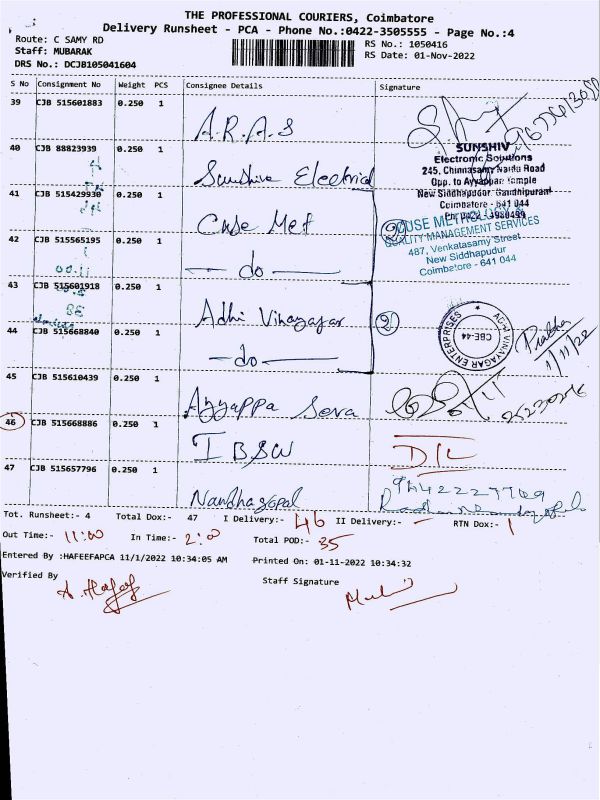 THE PROFESSIONAL COURIERS, Coimbatore
Delivery Runsheet - PCA - Phone No.:0422-3505555 - Page No.:4
Route: C SAMY RD
RS No.: 1050416
Staff: MUBARAK
RS Date: 01-Nov-2022
DRS No.: DCJB105041604
S No Consignment No Weight PCS Consignee Details Signature
39 CJB 515601883 0.250 1 A.R.A.S
40 CJB 88823939 0.250 1 Sunshive Electrical
SUNSHIV
Electronic Solutions
245, Chinnasamy Naidu Road
Opp. to Ayyappan Temple
New Siddhapudur, Gandhipuram
Coimbatore - 641 044
41 CJB 515429930 0.250 1 Case Met
QUALITY MANAGEMENT SERVICES
487, Venkatasamy Street
New Siddhapudur
Coimbatore - 641 044
42 CJB 515565195 0.250 1 do
2
43 CJB 515601918 0.250 1 Adhi Vinayagar
2
ADHI VINAYAGAR ENTERPRISES
CBE-44
Prabha
1/11/22
44 CJB 515668840 0.250 1 do
45 CJB 515610439 0.250 1 Ayyappa Seva
46 CJB 515668886 0.250 1 I BSW
D/L
47 CJB 515657796 0.250 1 Nandhagopal
Tot. Runsheet:- 4 Total Dox:- 47 I Delivery:- 46 II Delivery:- - RTN Dox:- 1
Out Time:- 11:00 In Time:- 2:00 Total POD:- 35
Entered By :HAFEEFAPCA 11/1/2022 10:34:05 AM Printed On: 01-11-2022 10:34:32
Verified By
Staff Signature